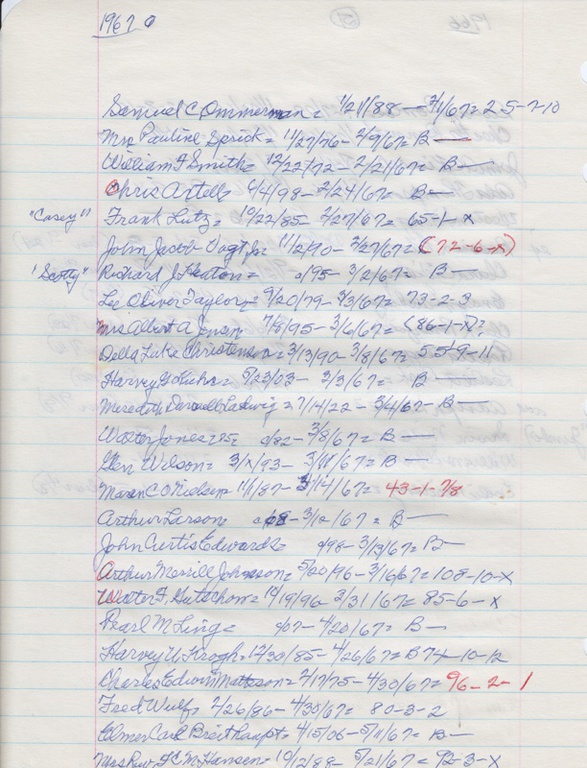 1967
Samuel C Ommerman = 1/21/88 — 2/1/67 = 25-7-10
Mrs Pauline Sprick = 11/27/76 - 2/9/67 = B —
William F Smith = 12/22/72 - 2/21/67 = B —
Chris Artell 9/4/98 - 2/24/67 = B —
"Casey" Frank Lutz = 10/22/85 - 2/27/67 = 65-1-X
John Jacob Vogt Jr = 11/2/90 - 2/27/67 = (72-6-X)
"Scotty" Richard J Heaton = c/95 - 3/2/67 = B —
Lee Oliver Taylor = 9/20/79 - 3/3/67 = 73-2-3
Mrs Albert A Jensen 7/8/95 - 3/6/67 = (86-1-X)?
Della Luke Christensen = 3/13/90 - 3/8/67 = 559-11
Harvey G 5/23/03 - 3/3/67 = B —
Meredith Darnell Ladwig = 7/14/22 - 3/4/67 = B
Walter Jones c/82 - 3/8/67 = B —
Glen Wilson = 3/X/93 - 3/11/67 = B —
Maren C O Nielsen 11/1/87 - 3/14/67 = 43-1-7/8
Arthur Larson = - 3/12/67 = B —
John Curtis Edwards c/98 - 3/13/67 = B —
Arthur Merrill Johnson = 5/20/96 - 3/16/67 = 108-10-X
Walter F. Gutschow = 10/19/96 - 3/31/67 = 85-6-X
Pearl M Ling = c/07 - 4/20/67 = B —
Harvey W Krogh = 12/30/85 - 4/26/67 = B 74-10-12
Charles Edwin Mattson = 2/17/75 - 4/30/67 = 96-2-1
Fred Wulf 4/26/86 - 4/30/67 = 80-3-2
Elmer Carl Breithaupt = 4/15/06 - 5/11/67 = B —
Mrs Rev F C M Hansen = 10/12/88 - 5/21/67 = 92-3-X